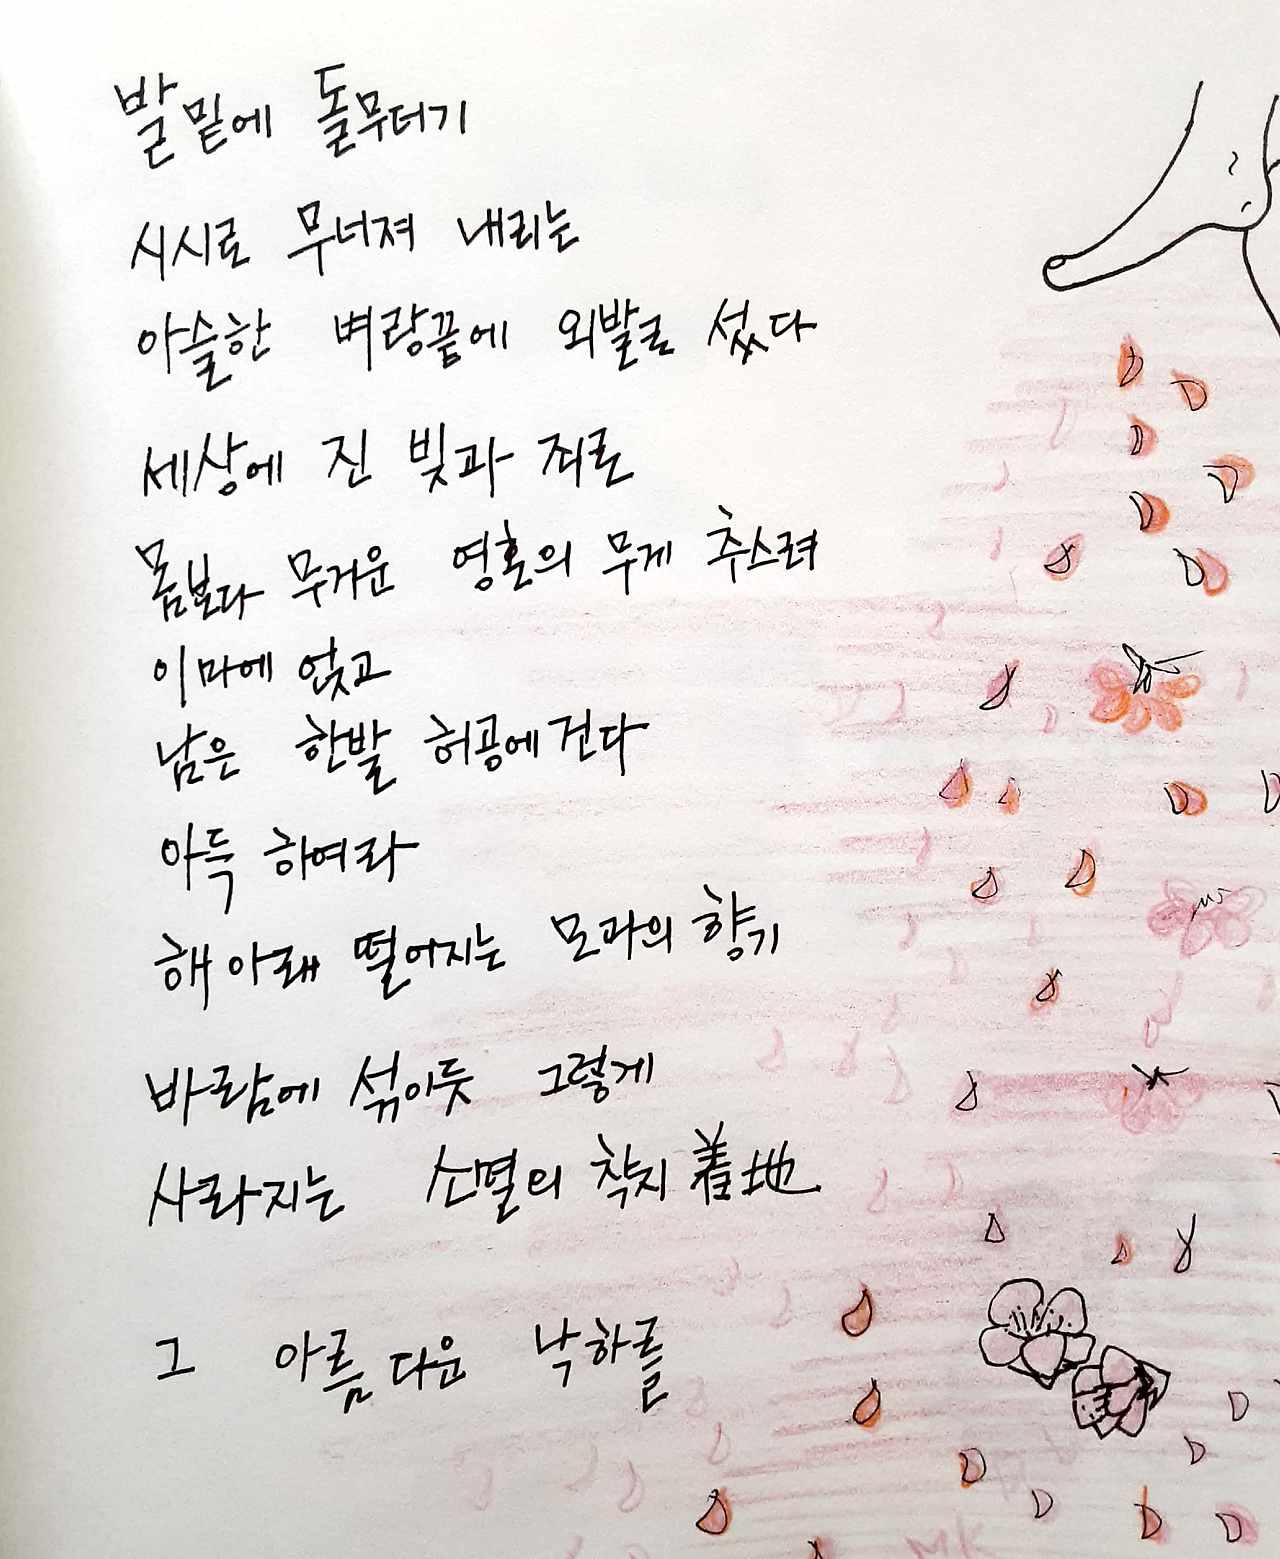 발밑에 돌무더기
시시로 무너져 내리는
아슬한 벼랑끝에 외발로 섰다
세상에 진 빚과 죄로
몸보다 무거운 영혼의 무게 추스려
이마에 얹고
남은 한발 허공에 건다
아득 하여라
해 아래 떨어지는 모과의 향기
바람에 섞이듯 그렇게
사라지는 소멸의 착지 着地
그 아름다운 낙하를
MK